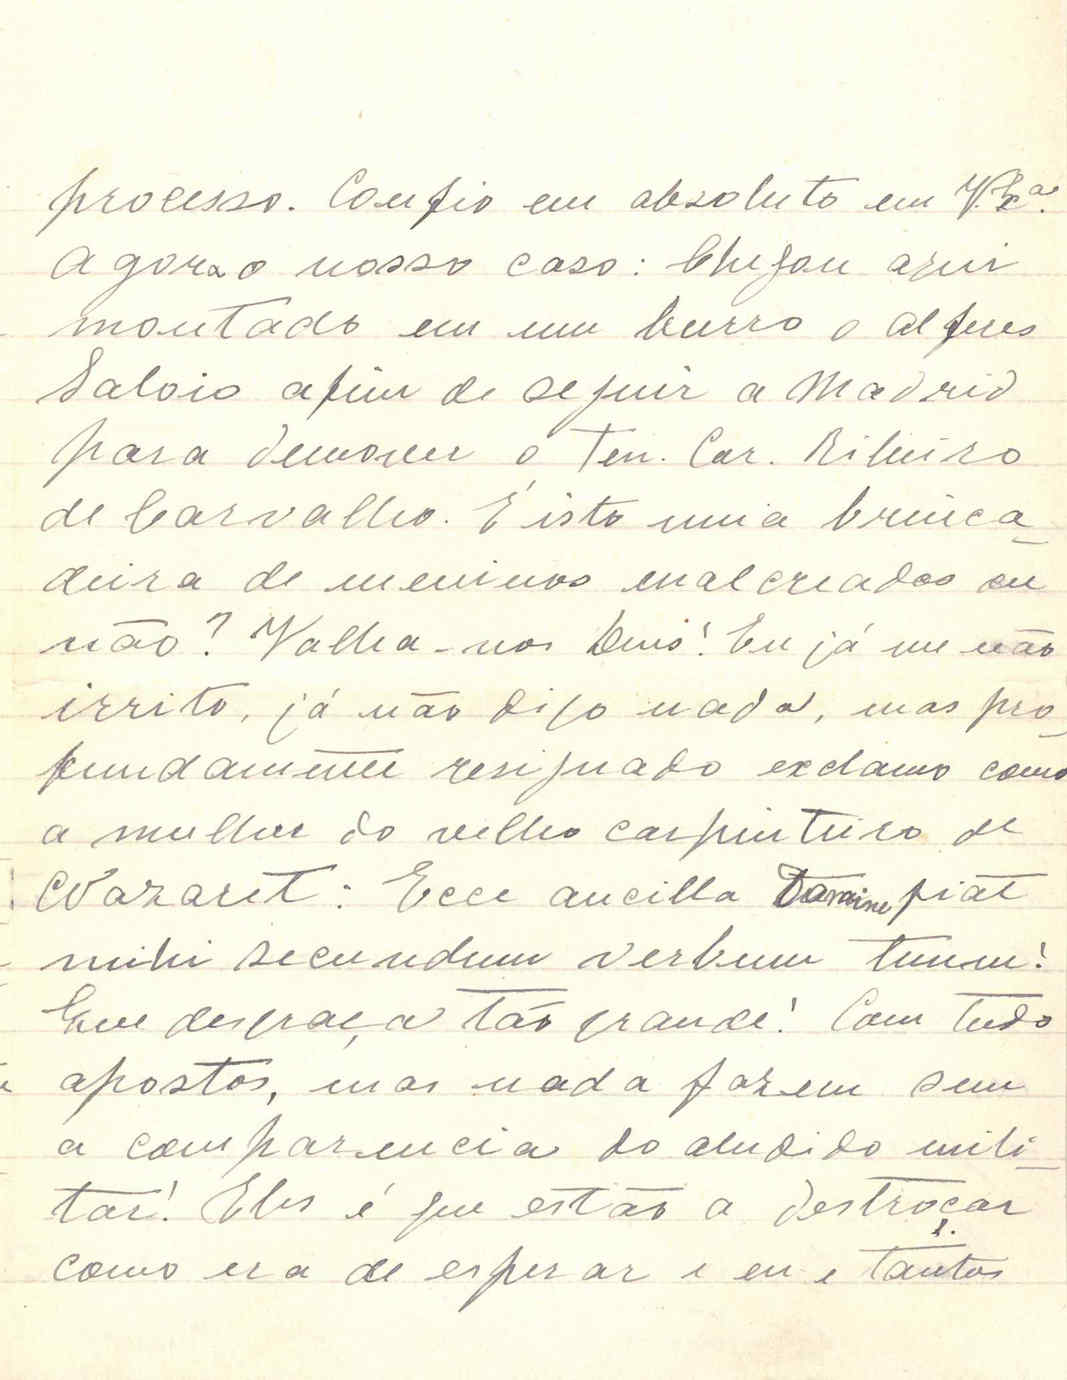 processo. Confio em absoluto em V. Exª.
Agora o nosso caso: Chegou aqui
montado em um burro o alferes
Saloio afim de seguir a Madrid
para demover o Ten. Cor. Ribeiro
de Carvalho. É isto uma brinca-
deira de meninos malcreados ou
não? Valha-nos Deus! Eu já me não
irrito, já não digo nada, mas pro-
fundamente resignado exclamo como
a mulher do velho carpinteiro de
Nazaret: Ecce ancilla Domine fiat
mihi secundum verbum tuum!
Que desgraça tão grande! Com tudo
apostos, mas nada fazem sem
a comparencia do aludido mili-
tar! Eles é que estão a destroçar
como era de esperar e eu e tantos